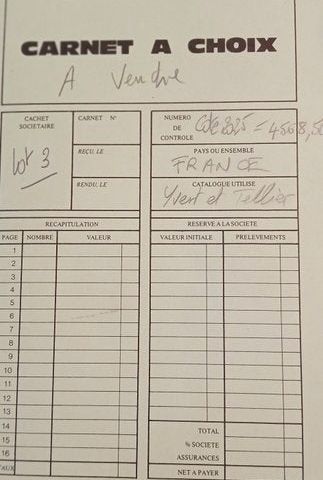 CARNET A CHOIX
A Vendre
CACHET
SOCIETAIRE
CARNET N°
Lot 3
REÇU, LE
RENDU, LE
NUMERO
DE
CONTROLE
Cote 2025 = 4568,50
PAYS OU ENSEMBLE
FRANCE
CATALOGUE UTILISE
Yvert et Tellier
RECAPITULATION
RESERVE A LA SOCIETE
PAGE NOMBRE VALEUR
VALEUR INITIALE PRELEVEMENTS
1
2
3
4
5
6
7
8
9
10
11
12
13
14
15
16
TAUX
TOTAL
% SOCIETE
ASSURANCES
NET A PAYER